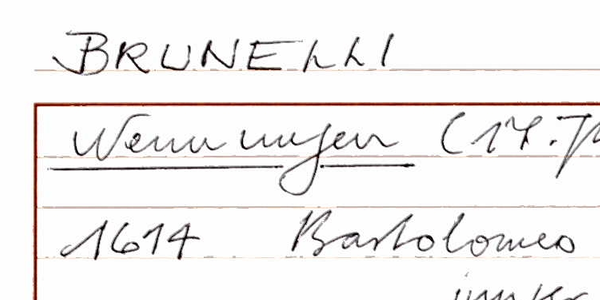 BRUNELLI
Nennungen (17. J
Bartolomeo